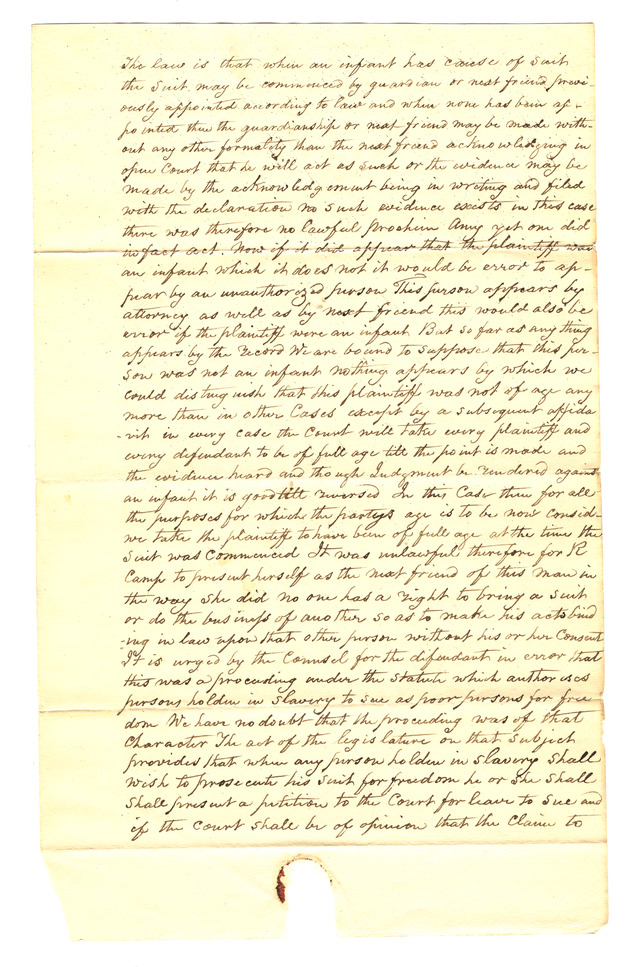 The law is that when an infant has cause of Suit
the Suit may be commenced by guardian or next friend previ-
ously appointed according to law and when none has been ap-
pointed then the guardianship or next friend may be made with-
out any other formality than the next friend acknowledging in
open Court that he will act as such or the evidence may be
made by the acknowledgement being in writing and filed
with the declaration no such evidence exists in this case
there was therefore no lawful prochein Amy yet one did
in fact act. Now if it did appear that the plaintiff was
an infant which it does not it would be error to ap-
pear by an unauthorized person This person appears by
attorney as well as by next friend this would also be
error if the plaintiff were an infant But so far as any thing
appears by the record We are bound to suppose that this per-
son was not an infant nothing appears by which we
could distinguish that this plaintiff was not of age any
more than in other Cases except by a subsequent affida
-vit in every case the Court will take every plaintiff and
every defendant to be of full age till the point is made and
the evidence heard and though Judgment be rendered against
an infant it is good till reversed In this Case then for all
the purposes for which the partys age is to be now consid-
we take the plaintiff to have been of full age at the time the
Suit was Commenced It was unlawful therefore for R
Camp to present herself as the next friend of this man in
the way she did no one has a right to bring a Suit
or do the business of another so as to make his acts bind
-ing in law upon that other person without his or her Consent
It is urged by the Counsel for the defendant in error that
this was a proceeding under the Statute which authorises
persons holden in Slavery to sue as poor persons for free
dom We have no doubt that the proceeding was of that
Character The act of the legislature on that Subject
provides that when any person holden in Slavery Shall
wish to prosecute his Suit for freedom he or She Shall
Shall present a petition to the Court for leave to Sue and
if the Court Shall be of opinion that the Claim to